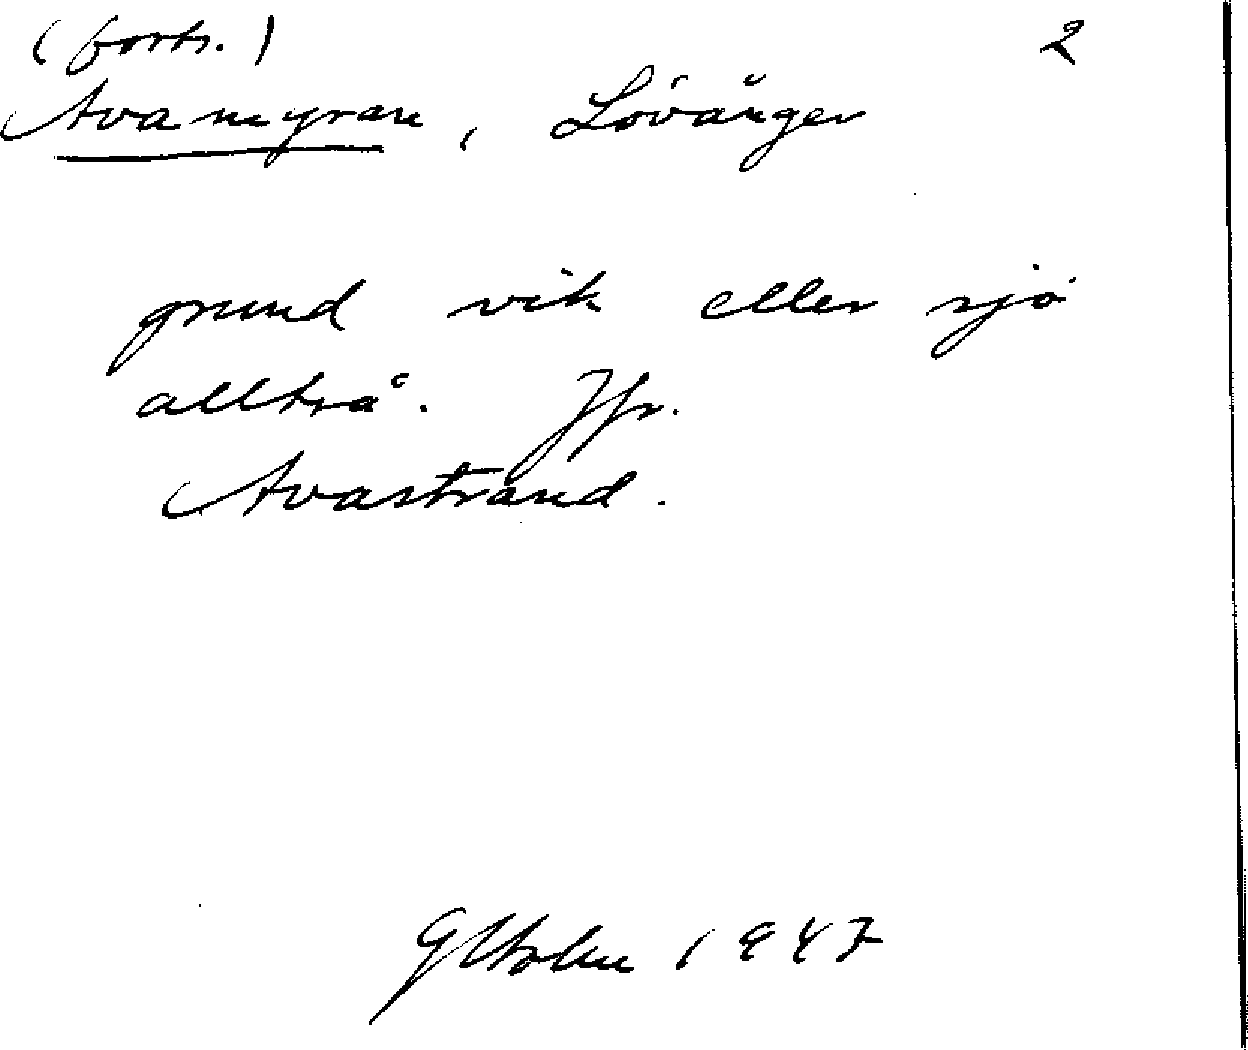 (forts.) 2
Avamyran, Lövånger
grund vik eller sjö
allträ. Jfr.
Avastrand.
G Holm 1947